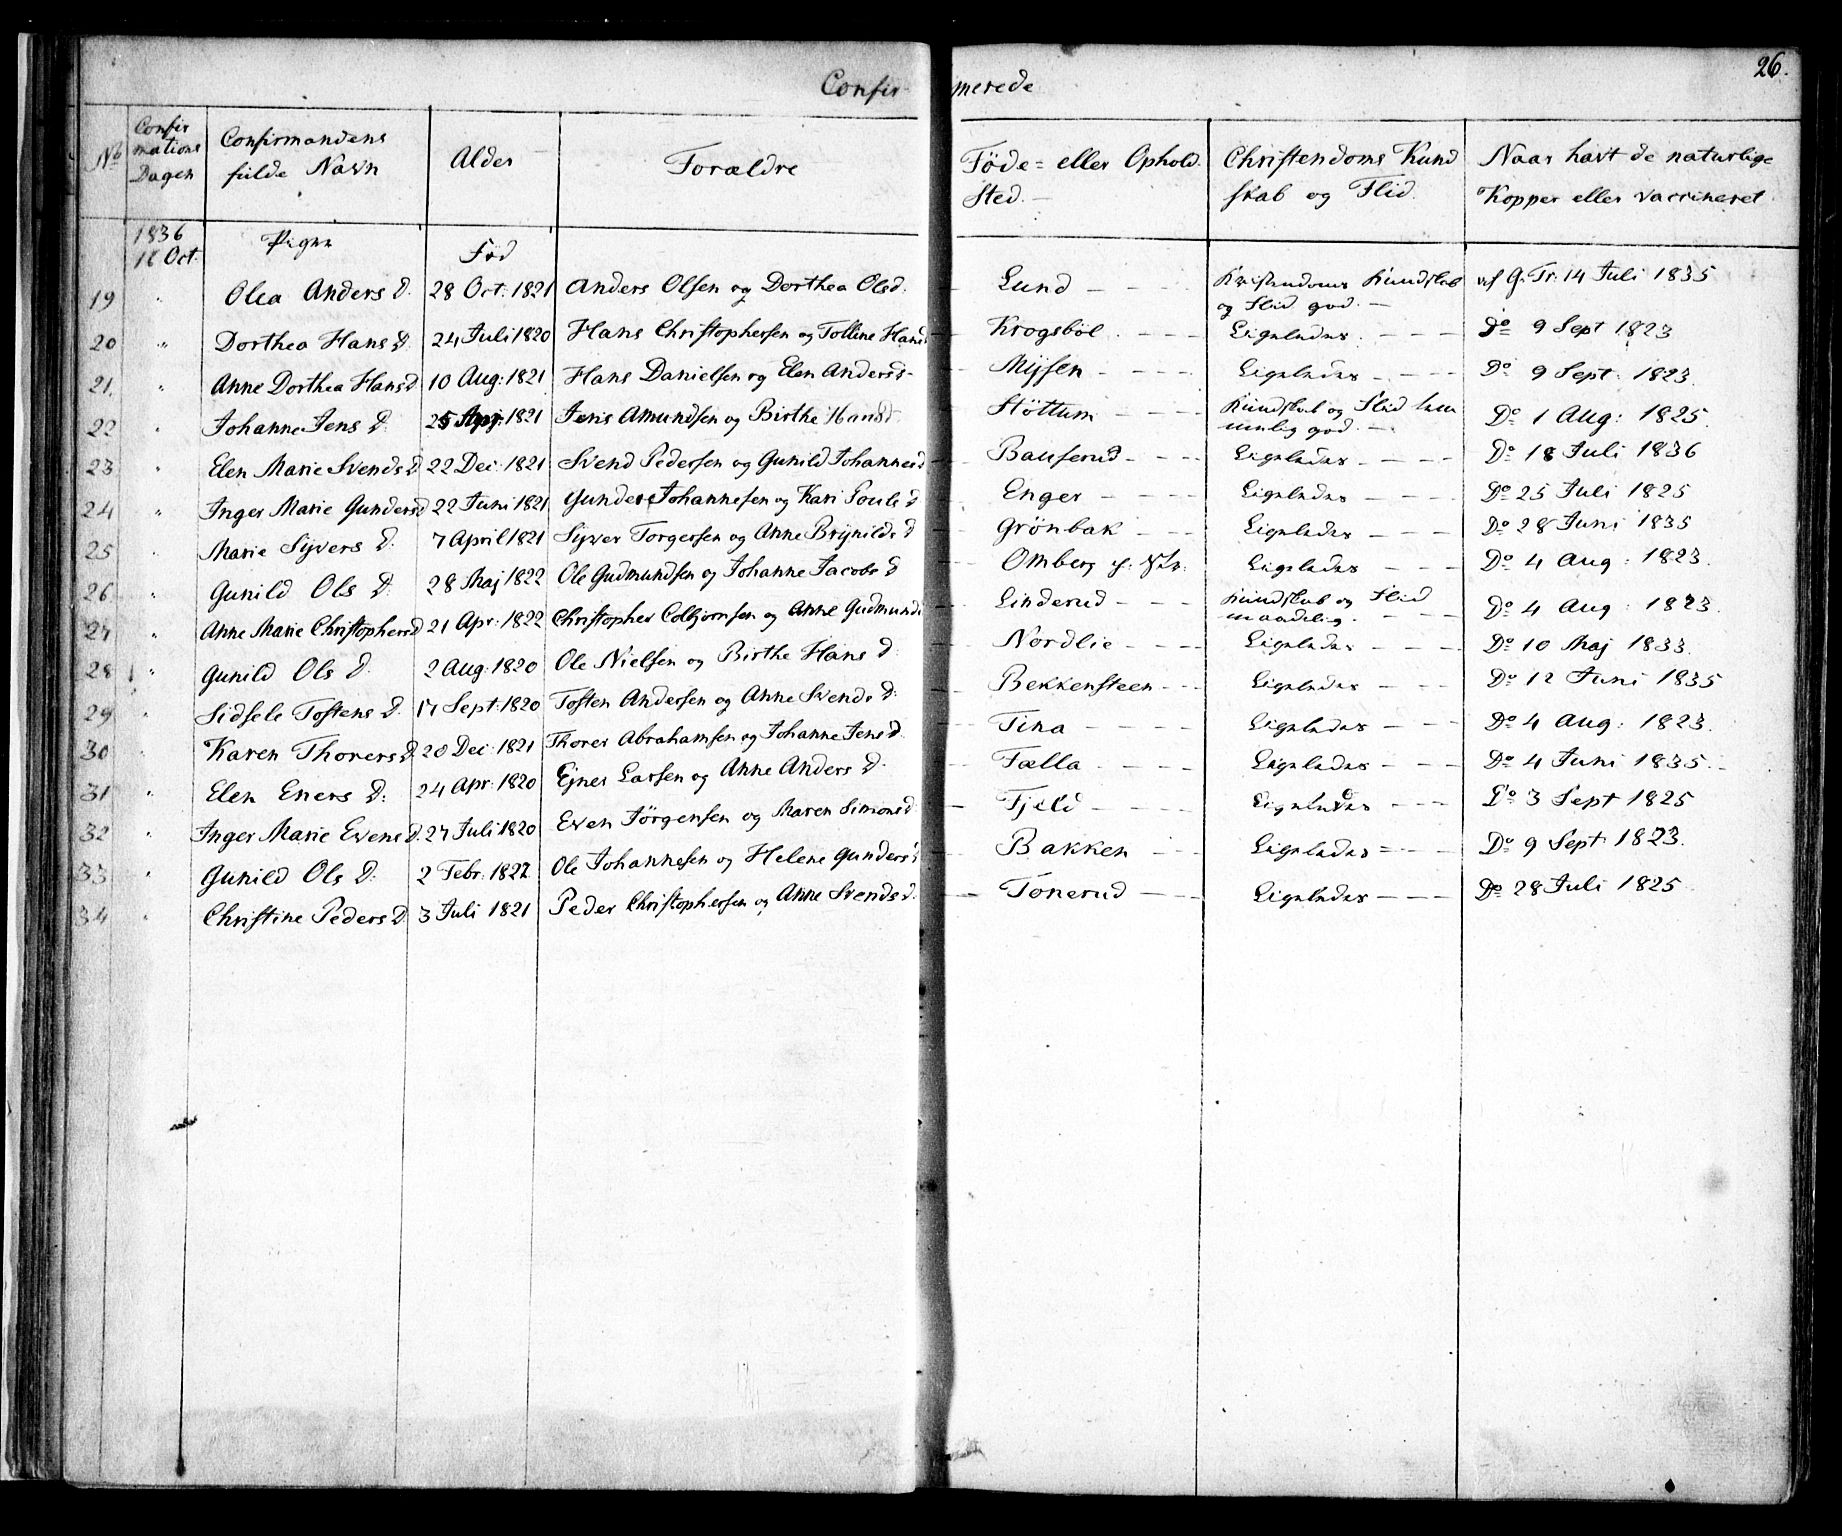 26.
Confirmerede
No Confirmations Dagen Confirmandens fulde Navn Alder Forældre Føde= eller Ophold. Sted. Christendoms Kundskab og Flid. Naar havt de naturlige Kopper eller vaccineret
1836 Oct: Piger Fød
19 " Olea Anders D. 28 Oct: 1821 Anders Olsen og Dorthea Olsd. Lund Kristendoms Kundskab og Flid god. af G: Tr: 14 Juli 1835
20 " Dorthea Hans D. 24 Juli 1820 Hans Christophersen og Tolline Hans Krogsböl Ligeledes Do 9 Sept 1823
21. " Anne Dorthea Hansd 10 Aug: 1821 Hans Danielsen og Elen Andersd Mÿsen Ligeledes Do 9 Sept: 1823
22 " Johanne Jens D 25 1821 Jens Amundsen og Birthe Hansd. Stöttum Kundskab og Flid temmelig god. Do 1 Aug: 1825
23 " Elen Marie Svends D 22 Dec: 1821 Svend Pedersen og Gunild Johannesd Bauserud Ligeledes Do 18 Juli 1836
24 " Inger Marie Gundersd 22 Juni 1821 Gunder Johannesen og Kari Pouls D Enger Ligeledes Do 25 Juli 1825
25 " Marie Sÿvers D. 7 April 1821 Sÿver Torgersen og Anne Brÿnilds D Grönbak Ligeledes Do 28 Juni 1835
26 " Gunild Ols D. 28 Maj 1822 Ole Gudmundsen og Johanne Jacobs D Omberg Ligeledes Do 4 Aug: 1823.
27 " Anne Marie Christophersd 21 Apr: 1822 Christopher Colbjornsen og Anne Gudmunds Linderud Kundskab og Flid maadelig. Do 4 Aug: 1823.
28 " Gunild Ols D. 2 Aug: 1820 Ole Nielsen og Birthe Hans D. Nordlie Ligeledes Do 10 Maj 1833.
29 " Sidsele Tostens D. 17 Sept: 1820 Tosten Andersen og Anne Svends D: Bekkensteen Ligeledes Do 12 Juni 1835
30 " Karen Thorers D. 20 Dec: 1821 Thorer Abrahamsen og Johanne Jens D. Tina Ligeledes Do 4 Aug: 1823.
31 " Elen Eners D: 24 Apr: 1820 Ejner Larsen og Anne Anders D. Fælla Ligeledes Do 4 Juni 1835.
32 " Inger Marie Evens D. 27 Juli 1820 Even Jörgensen og Maren Simonsd Fjeld Ligeledes Do 3 Sept 1825
33 " Gunild Ols D: 2 Febr: 1822 Ole Johannesen og Helene Gundersd Bakken Ligeledes Do 9 Sept: 1823.
34 " Christine Peders D. 3 Juli 1821 Peder Christophersen og Anne Svends D. Tonerud Ligeledes Do 28 Juli 1825